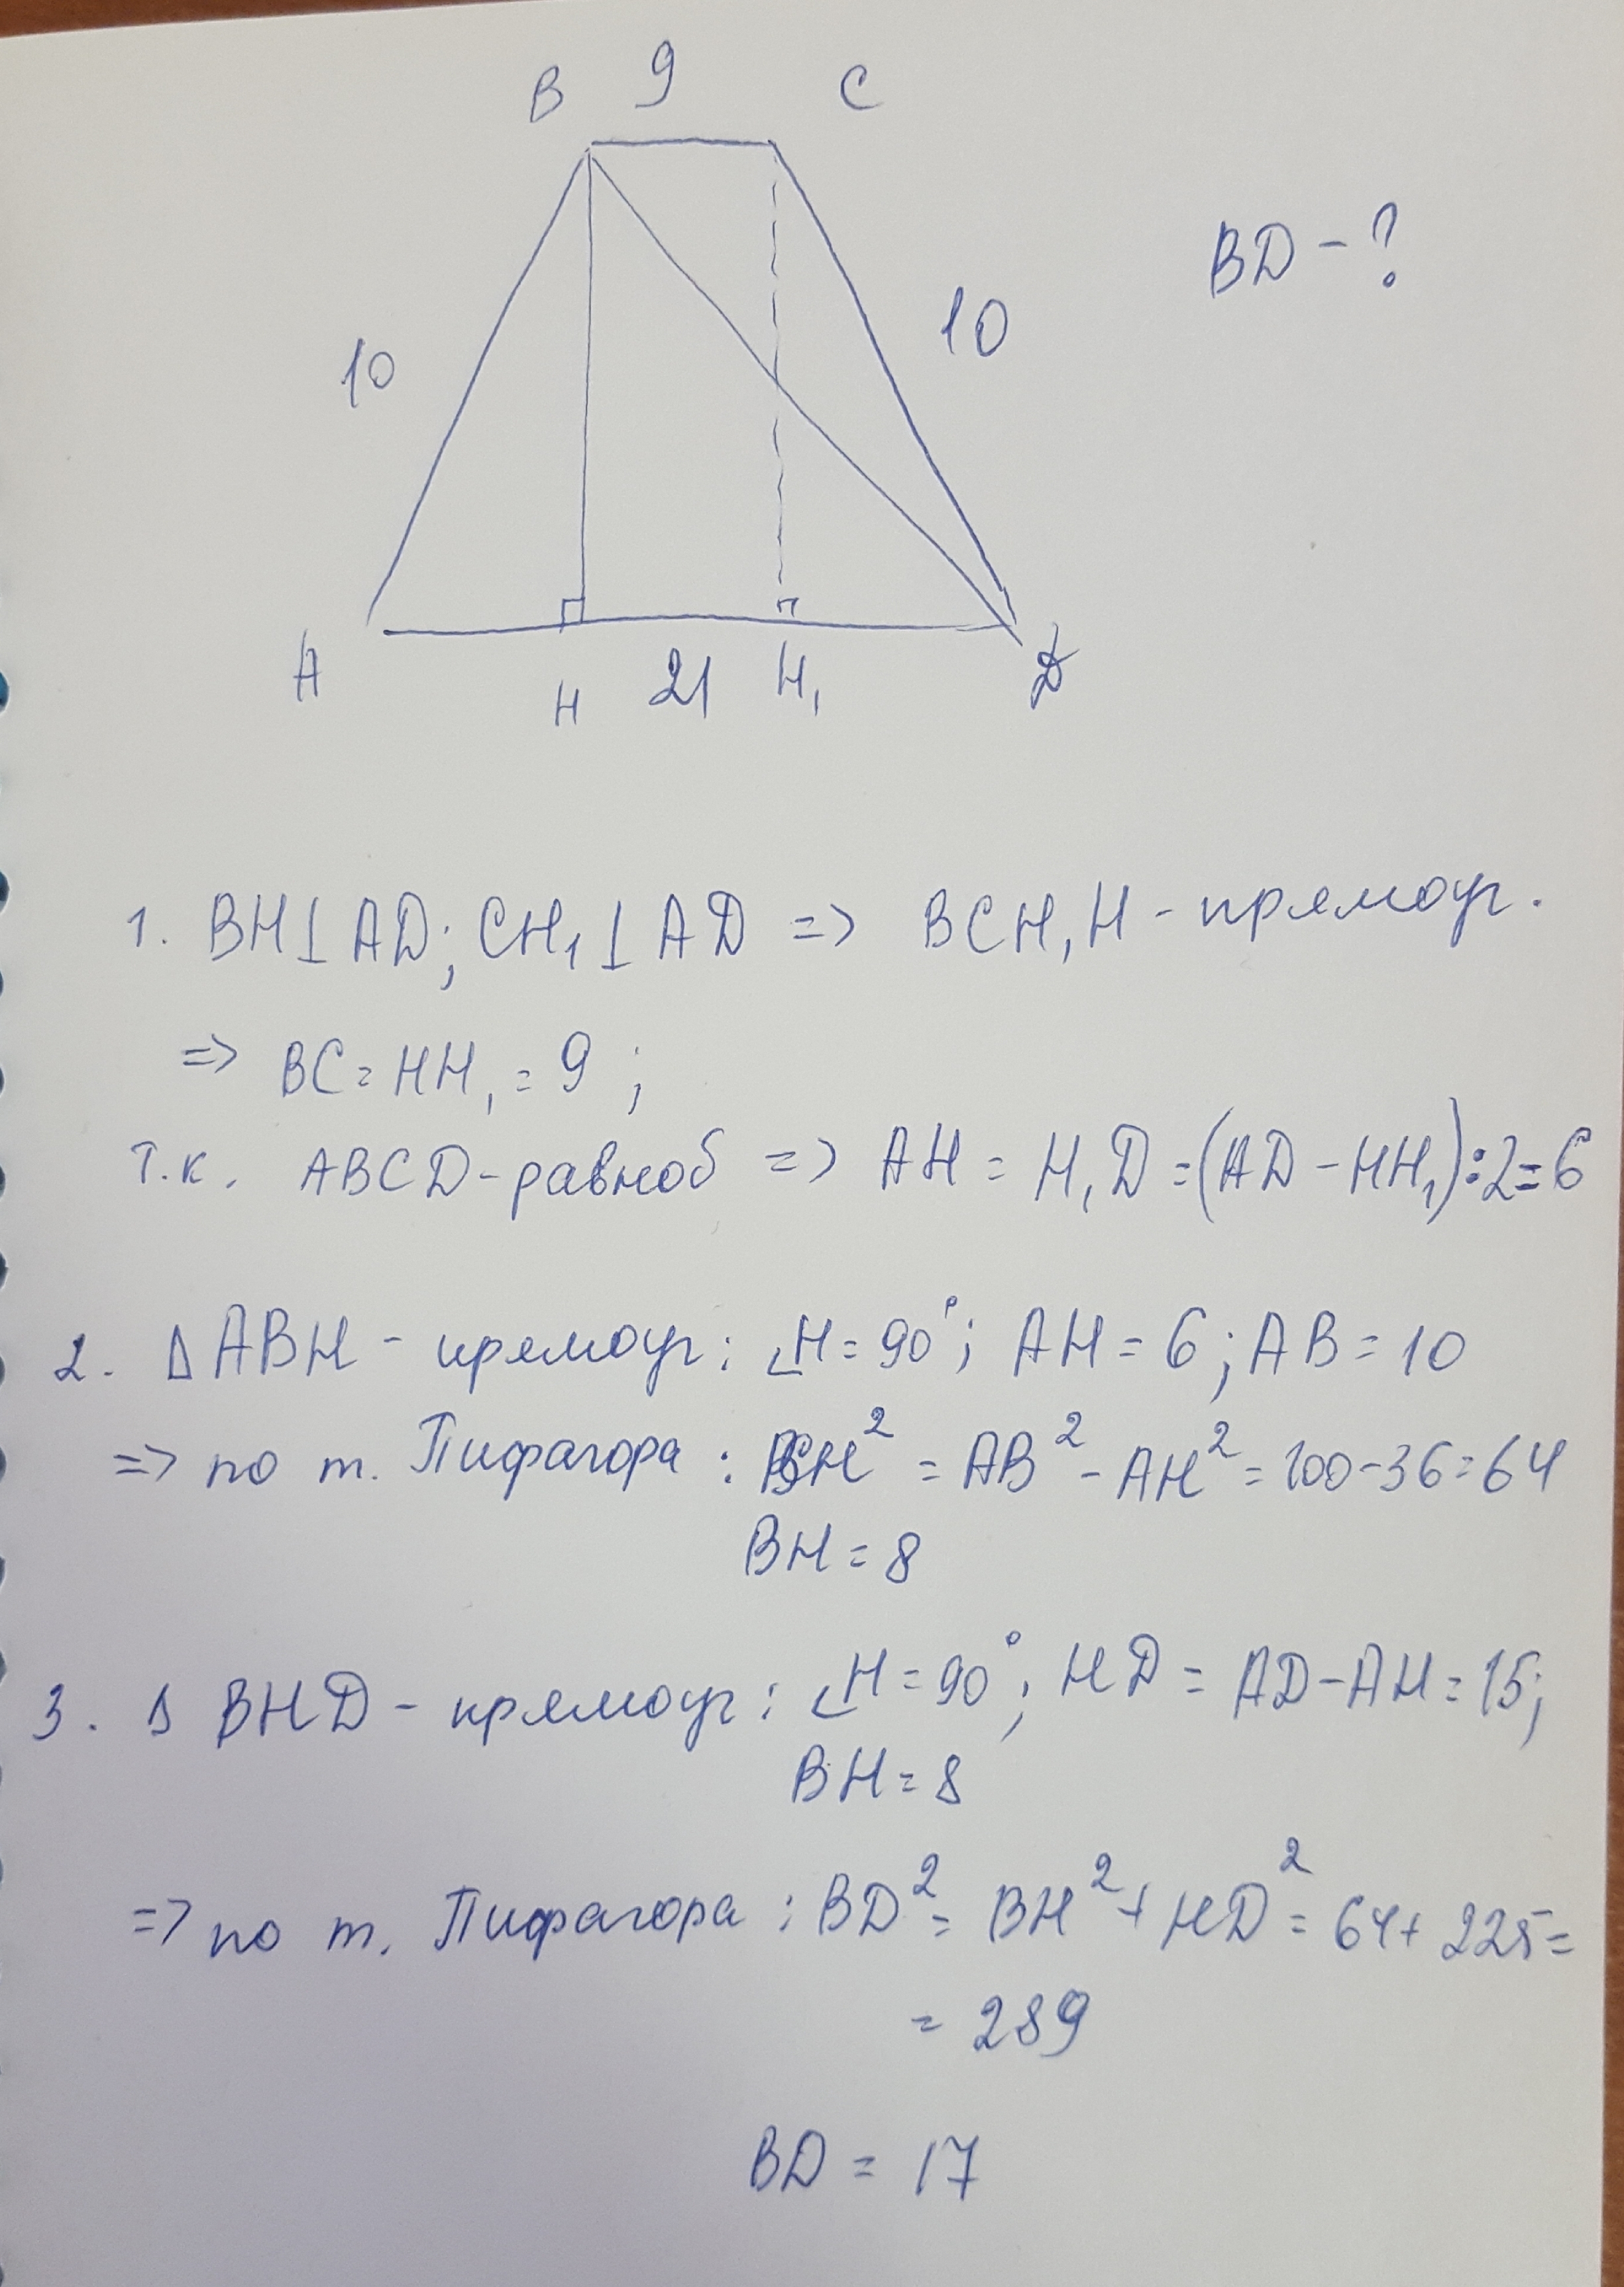 B 9 C
BD - ?
10
10
A H 21 H₁ D
1. BH⊥AD; CH₁⊥AD => BCH₁H - прямоуг.
=> BC = HH₁ = 9 ;
Т.к. ABCD - равноб => AH = H₁D = (AD - HH₁) : 2 = 6
2. Δ ABH - прямоуг: ∠H = 90°; AH = 6; AB = 10
=> по т. Пифагора : BH² = AB² - AH² = 100 - 36 = 64
BH = 8
3. Δ BHD - прямоуг: ∠H = 90°; HD = AD - AH = 15;
BH = 8
=> по т. Пифагора : BD² = BH² + HD² = 64 + 225 =
= 289
BD = 17